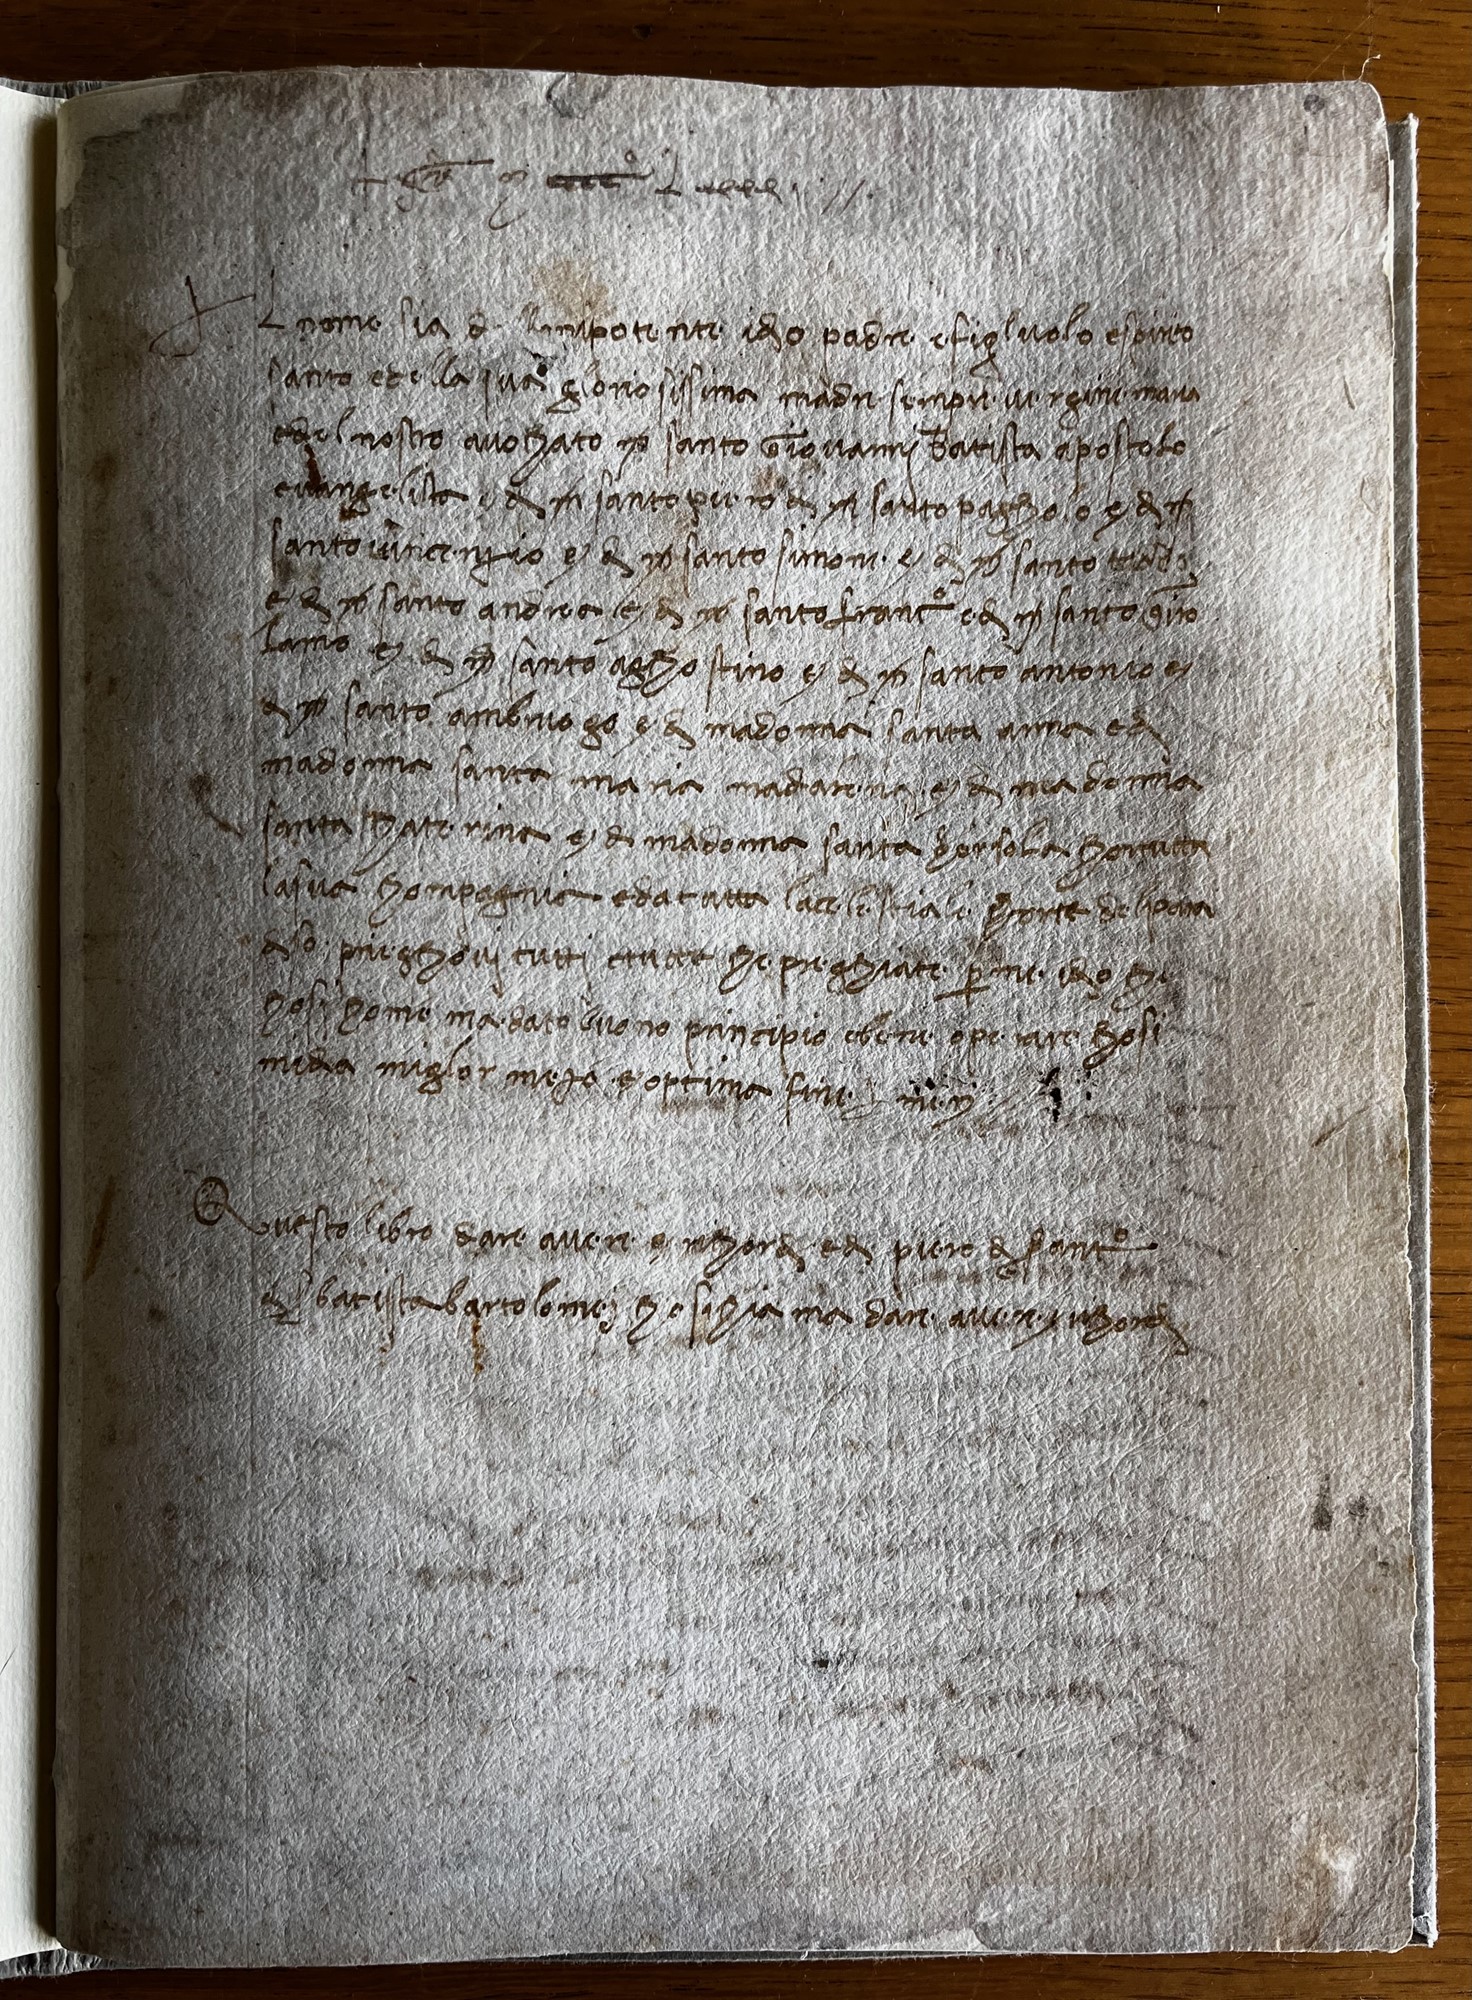 Al nome sia di Linipotente idio padre e figluolo e spirito
santo e della sua gloriosissima madre sempre vergine maria
e del nostro avochato m santo Giovannj Batista apostolo
evangelista e di m santo piero e di m santo pagholo e di m
santo vincenzio e di m santo simone e di m santo tadeo
e di m santo andrea e di m santo franco e di m santo Giro
lamo e di m santo aghostino e di m santo antonio e
di m santo ambruogo e di madonna santa anna e di
madonna santa maria madalena e di madonna
santa chaterina e di madonna santa orsola chon tutta
la sua chompagnia e da tutta la celestiale chorte del para
diso prieghovj tutti e tutte che preghiate per me idio che
chosi chome ma dato buono principio e bene operare chosi
mi dia miglior mezo e optima fine Amen
Questo libro dare avere e richordi e di piero di franco
di batista bartolomej che si chiama dare avere e richordi